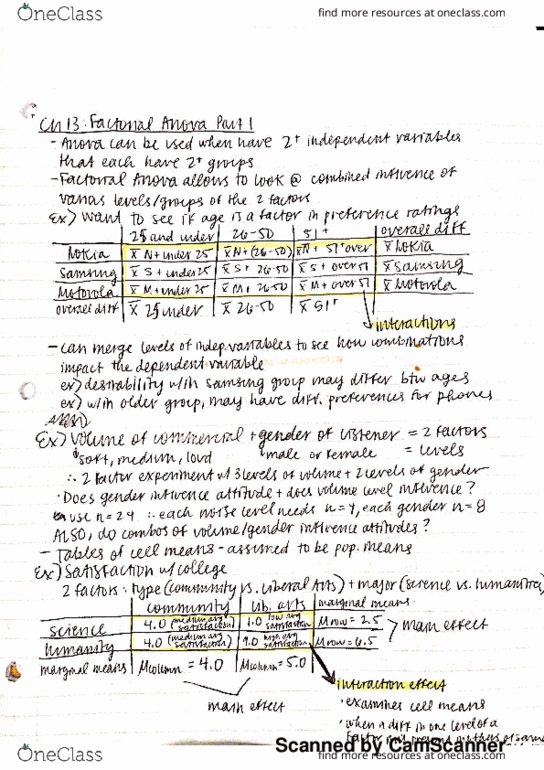 OneClass
find more resources at oneclass.com
Ch 13: Factorial Anova Part 1
- Anova can be used when have 2+ independent variables
that each have 2+ groups
- Factorial Anova allows to look @ combined influence of
various levels/groups of the 2 factors
Ex) want to see if age is a factor in preference ratings
25 and under | 26-50 | 51+ | overall diff
Nokia | x̄ N + under 25 | x̄ N + (26-50) | x̄ N + 51+ over | x̄ Nokia
Samsung | x̄ S + under 25 | x̄ S + 26-50 | x̄ S + over 51 | x̄ Samsung
Motorola | x̄ M + under 25 | x̄ M + 26-50 | x̄ M + over 51 | x̄ Motorola
overall diff | x̄ 25 under | x̄ 26-50 | x̄ 51+
interactions
- can merge levels of indep. variables to see how combinations
impact the dependent variable
ex) desirability w/in Samsung group may differ btw ages
ex) w/in older group, may have diff. preferences for phones
Ex) Volume of commercial + gender of listener = 2 factors
soft, medium, loud male or female = levels
∴ 2 factor experiment w/ 3 levels of volume + 2 levels of gender
· Does gender influence attitude + does volume level influence?
use n = 24 ∴ each noise level needs n = , each gender n = 8
ALSO, do combos of volume/gender influence attitudes?
- Tables of cell means - assumed to be pop. means
Ex) Satisfaction w/ college
2 factors: type (community vs. Liberal Arts) + major (science vs. humanities)
community | Lib. arts | marginal means
science | 4.0 (medium avg satisfaction) | 1.0 low avg satisfaction | Mrow = 2.5
humanity | 4.0 (medium avg satisfaction) | 9.0 high avg satisfaction | Mrow = 6.5
main effect
marginal means | Mcolumn = 4.0 | Mcolumn = 5.0
main effect
interaction effect
· examines cell means
· when a diff in one level of a
Scanned by CamScanner
OneClass
find more resources at oneclass.com